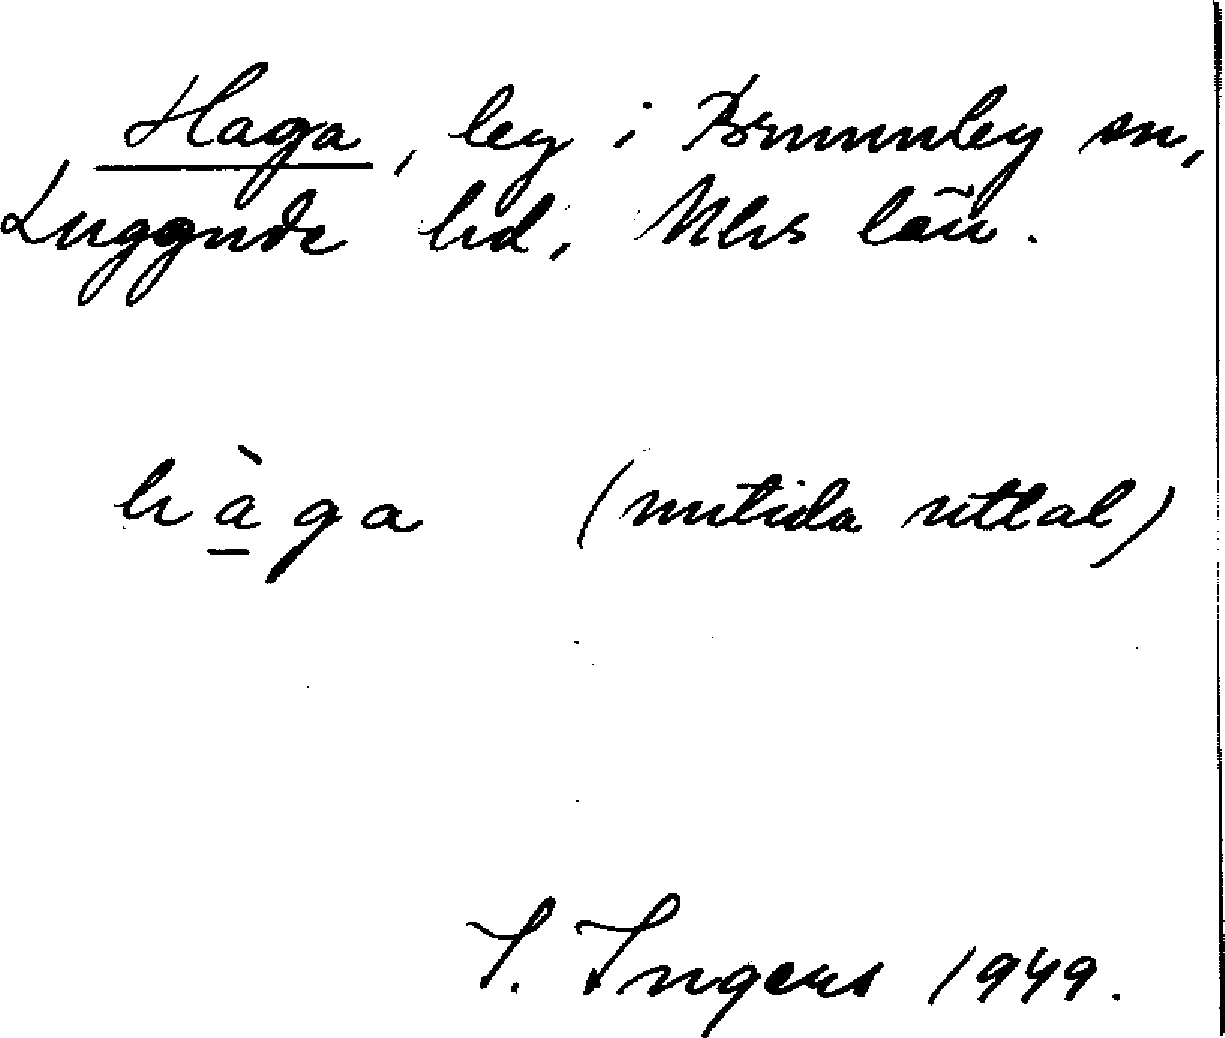 Haga, by i Brunnby sn,
Luggude hd, Mlhs län.
hàga (nutida uttal)
I. Ingers 1949.